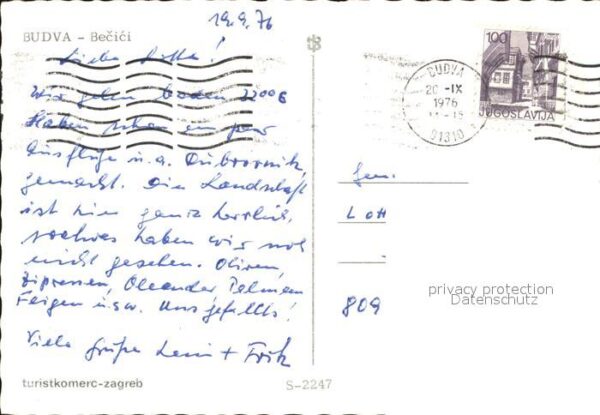 19.9.76
BUDVA – Bečići
Liebe Lotte!
Wir gehen baden 22°C
Haben schon ein paar
Ausflüge u.a. Dubrovnik,
gemacht. Die Landschaft
ist hier ganz herrlich,
sowas haben wir noch
nicht gesehen. Oliven,
Zipressen, Oleander Palmen
Feigen usw. Uns gefällts!
Viele Grüße Leni + Fritz
turistkomerc-zagreb
S-2247
100
JUGOSLAVIJA
BUDVA
20 -IX
1976
81310
Lott
809
privacy protection
Datenschutz